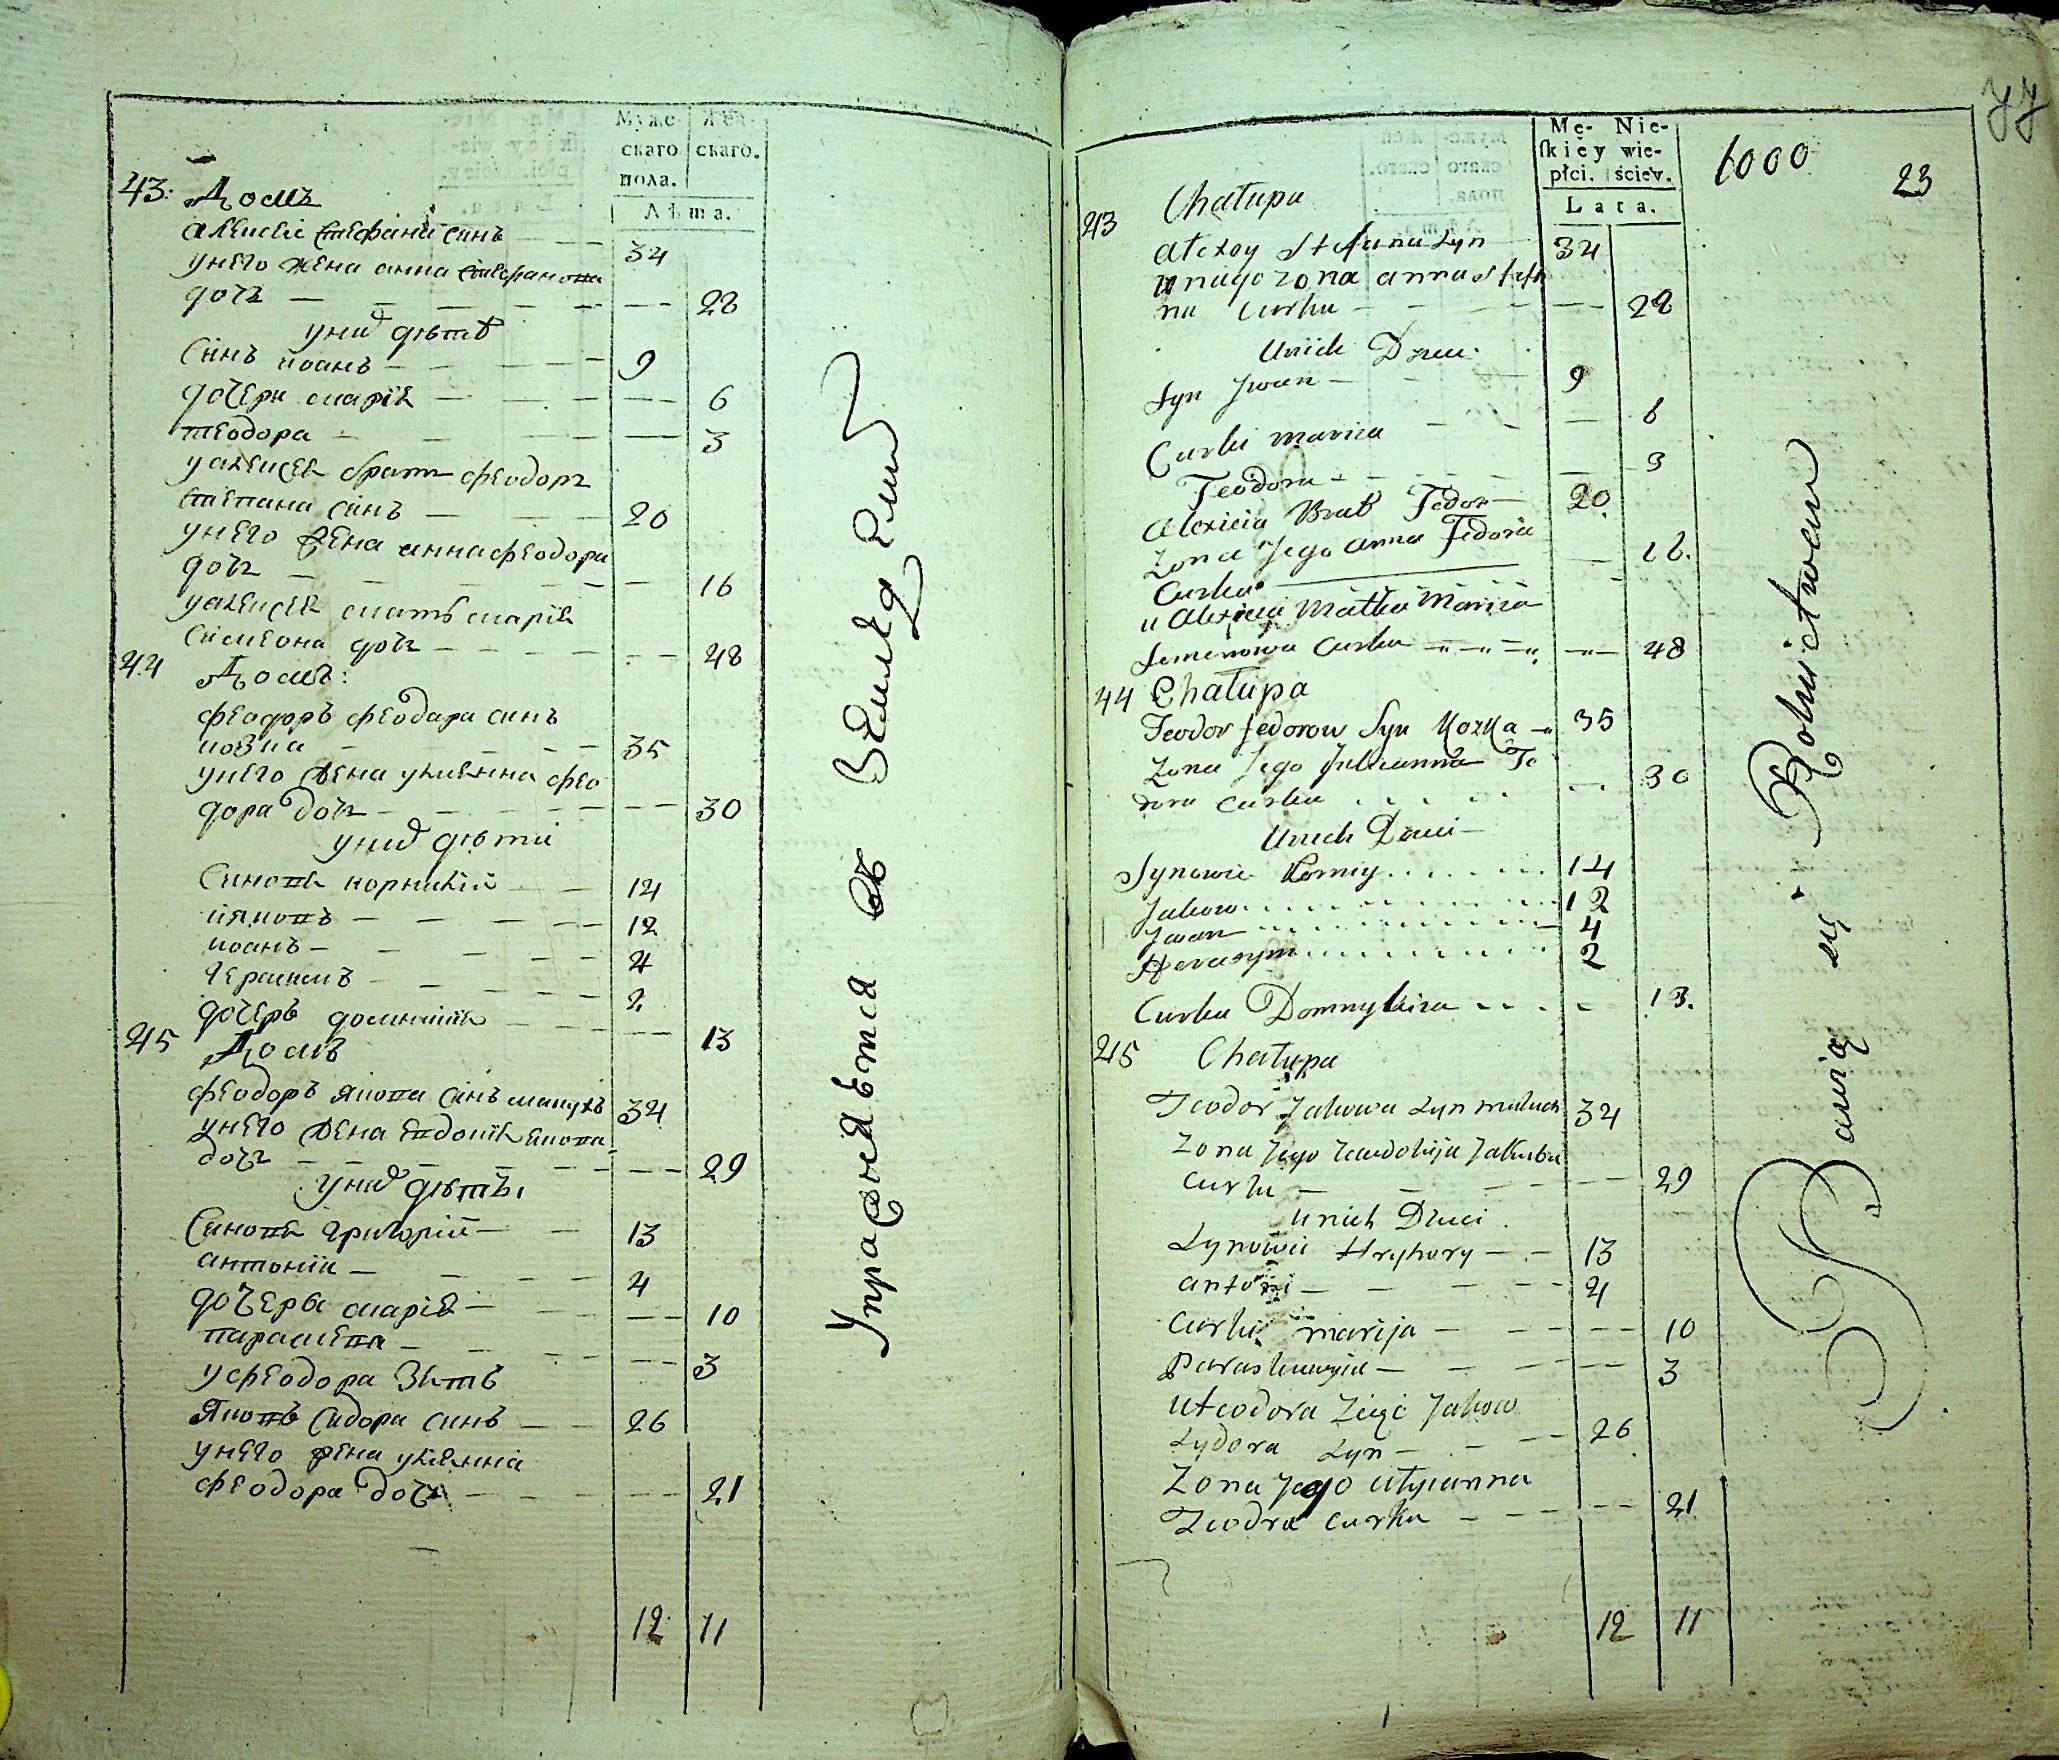 Муже- Жен-
скаго скаго.
пола.
Лѣта.
43: Домъ
алексеі стефана синъ 34
унего жена анна стефанова
дочь 28
уних дѣтѣ
Синъ иоанъ 9
дочери марія 6
теодора 3
уалексея братъ феодоръ
степана синъ 20
унего жена анна феодора
дочь 16
уалексея мать марія
симеона дочь 48
44 Домъ:
феодоръ феодара синъ
козка 35
унего жена улиянна фео
дора дочь 30
уних дѣти
Синовя корнилій 14
ияковъ 12
иоанъ 4
герасимъ 2
дочерь 13
45 Домъ
феодоръ якова синъ 34
унего жена евдокія якова
дочь 29
уних дѣти
Синовя григорій 13
антоній 4
дочеры марія 10
параскева 3
уфеодора зять
Яковъ сидора синъ 26
унего жена улиянна
феодора дочь 21
12 11
Упражняется въ Земледелии
77
Mę- Nie-
skiey wie-
płci. ściey.
Lata.
1000
23
43 Chałupa
Alexey Stefana Syn 34
unago zona anna Stefa
na curka 28
Unich Dzieci
Syn Jwan 9
Curki Marica 6
Teodora 3
Alexieia Brat Fedor 20
Zona Jego Anna Fedora
Curka 16.
u Alexieia Matka Marica
Semenowa Curka 48
44 Chałupa
Teodor Fedorow Syn Kozka 35
Zona Jego Julianna Te
dora curka 30
Unich Dzieci
Synowie Korniy 14
Jakow 12
Jwan 4
Herasym 2
Curka Domnykiia 13.
45 Chałupa
Teodor Jakowa Syn 34
Zona Jego Jewdokija Jakuba
curka 29
unich Dzieci
Synowie Hryhory 13
antoni 4
Curki marija 10
Paraskiewija 3
uteodora Zięć Jakow
Sydora Syn 26
Zona Jego Ulyianna
Teodra curka 21
12 11
Bawią się Rolnictwem